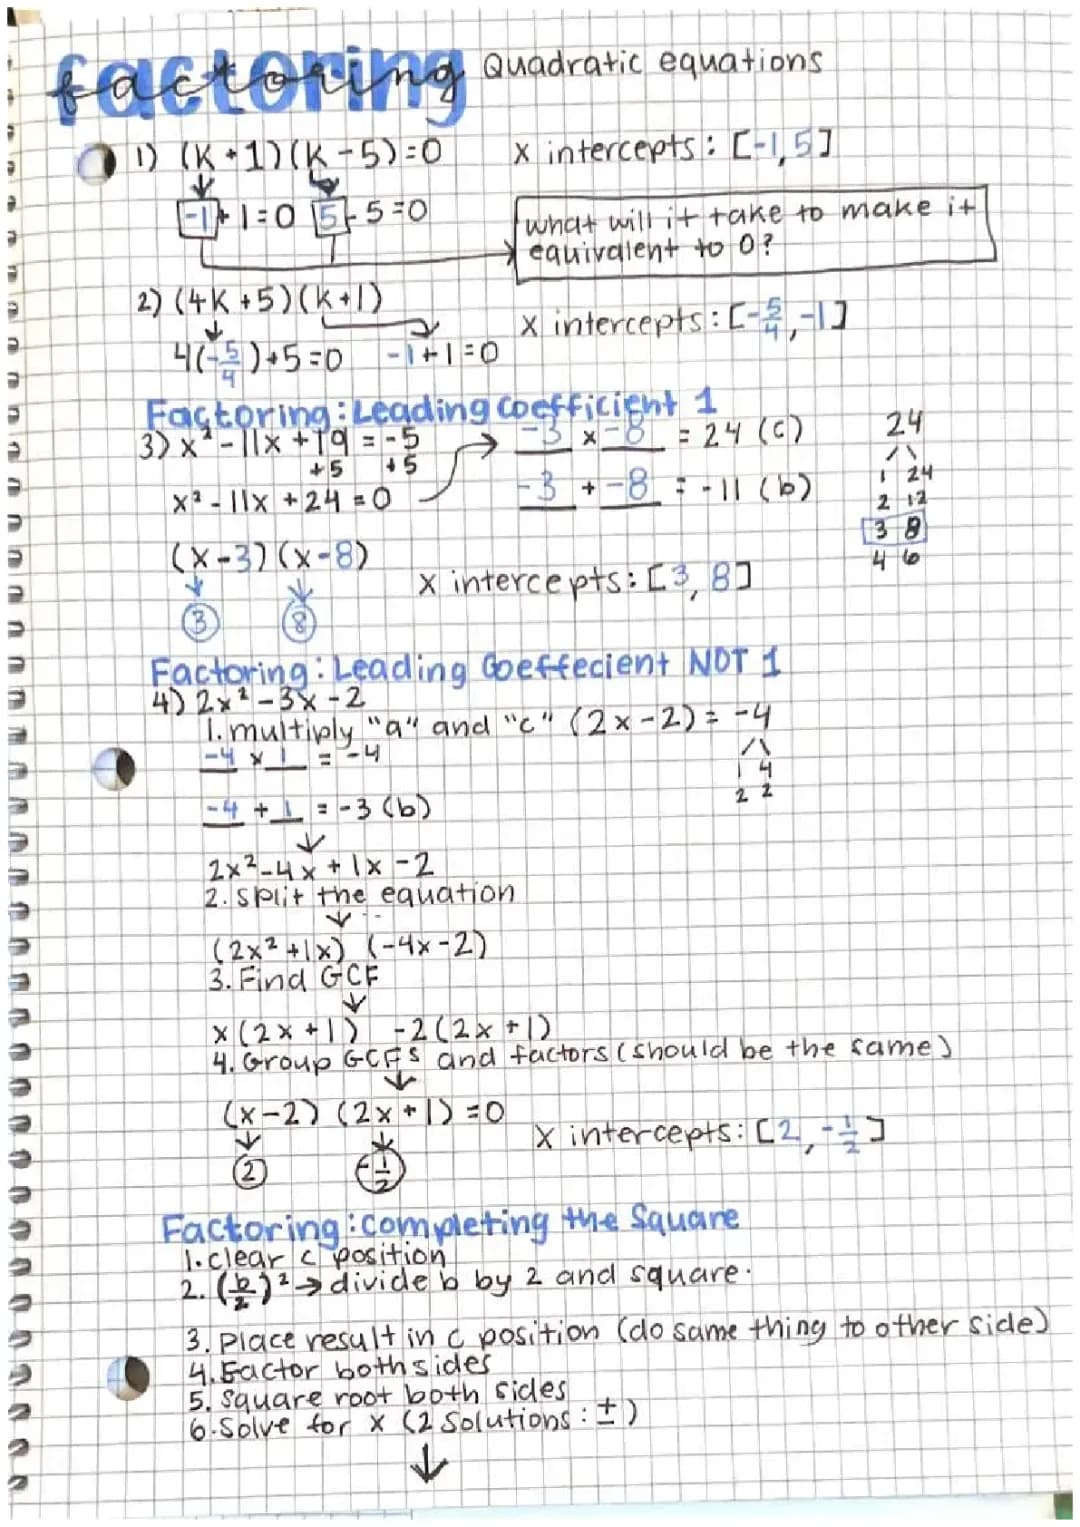 factoring Quadratic equations
1) (K+1)(K-5)=0 x intercepts: [-1,5]
-1+1=0 5-5=0
what will it take to make it
equivalent to 0?
2) (4K+5)(K+1)
x intercepts: [-5/4, -1]
4(-5/4)+5=0 -1+1=0
Factoring: Leading coefficient 1
3) x²-11x+19=-5
+5 +5
x²-11x+24=0
-3 x -8 = 24 (c)
-3 + -8 = -11 (b)
24
1 24
2 12
3 8
4 6
(x-3)(x-8)
3 8
x intercepts: [3, 8]
Factoring: Leading Coeffecient NOT 1
4) 2x²-3x-2
1. multiply "a" and "c" (2x-2) = -4
1 4
2 2
-4 x 1 = -4
-4 + 1 = -3 (b)
2x²-4x+1x-2
2. split the equation
(2x²+1x) (-4x-2)
3. Find GCF
x(2x+1) -2(2x+1)
4. Group GCFs and factors (should be the same)
(x-2) (2x+1) =0
2 -1/2
x intercepts: [2, -1/2]
Factoring: completing the Square
1. clear c position
2. (b/2)² → divide b by 2 and square.
3. Place result in c position (do same thing to other side)
4. Factor both sides
5. square root both sides
6. Solve for x (2 Solutions: ±)